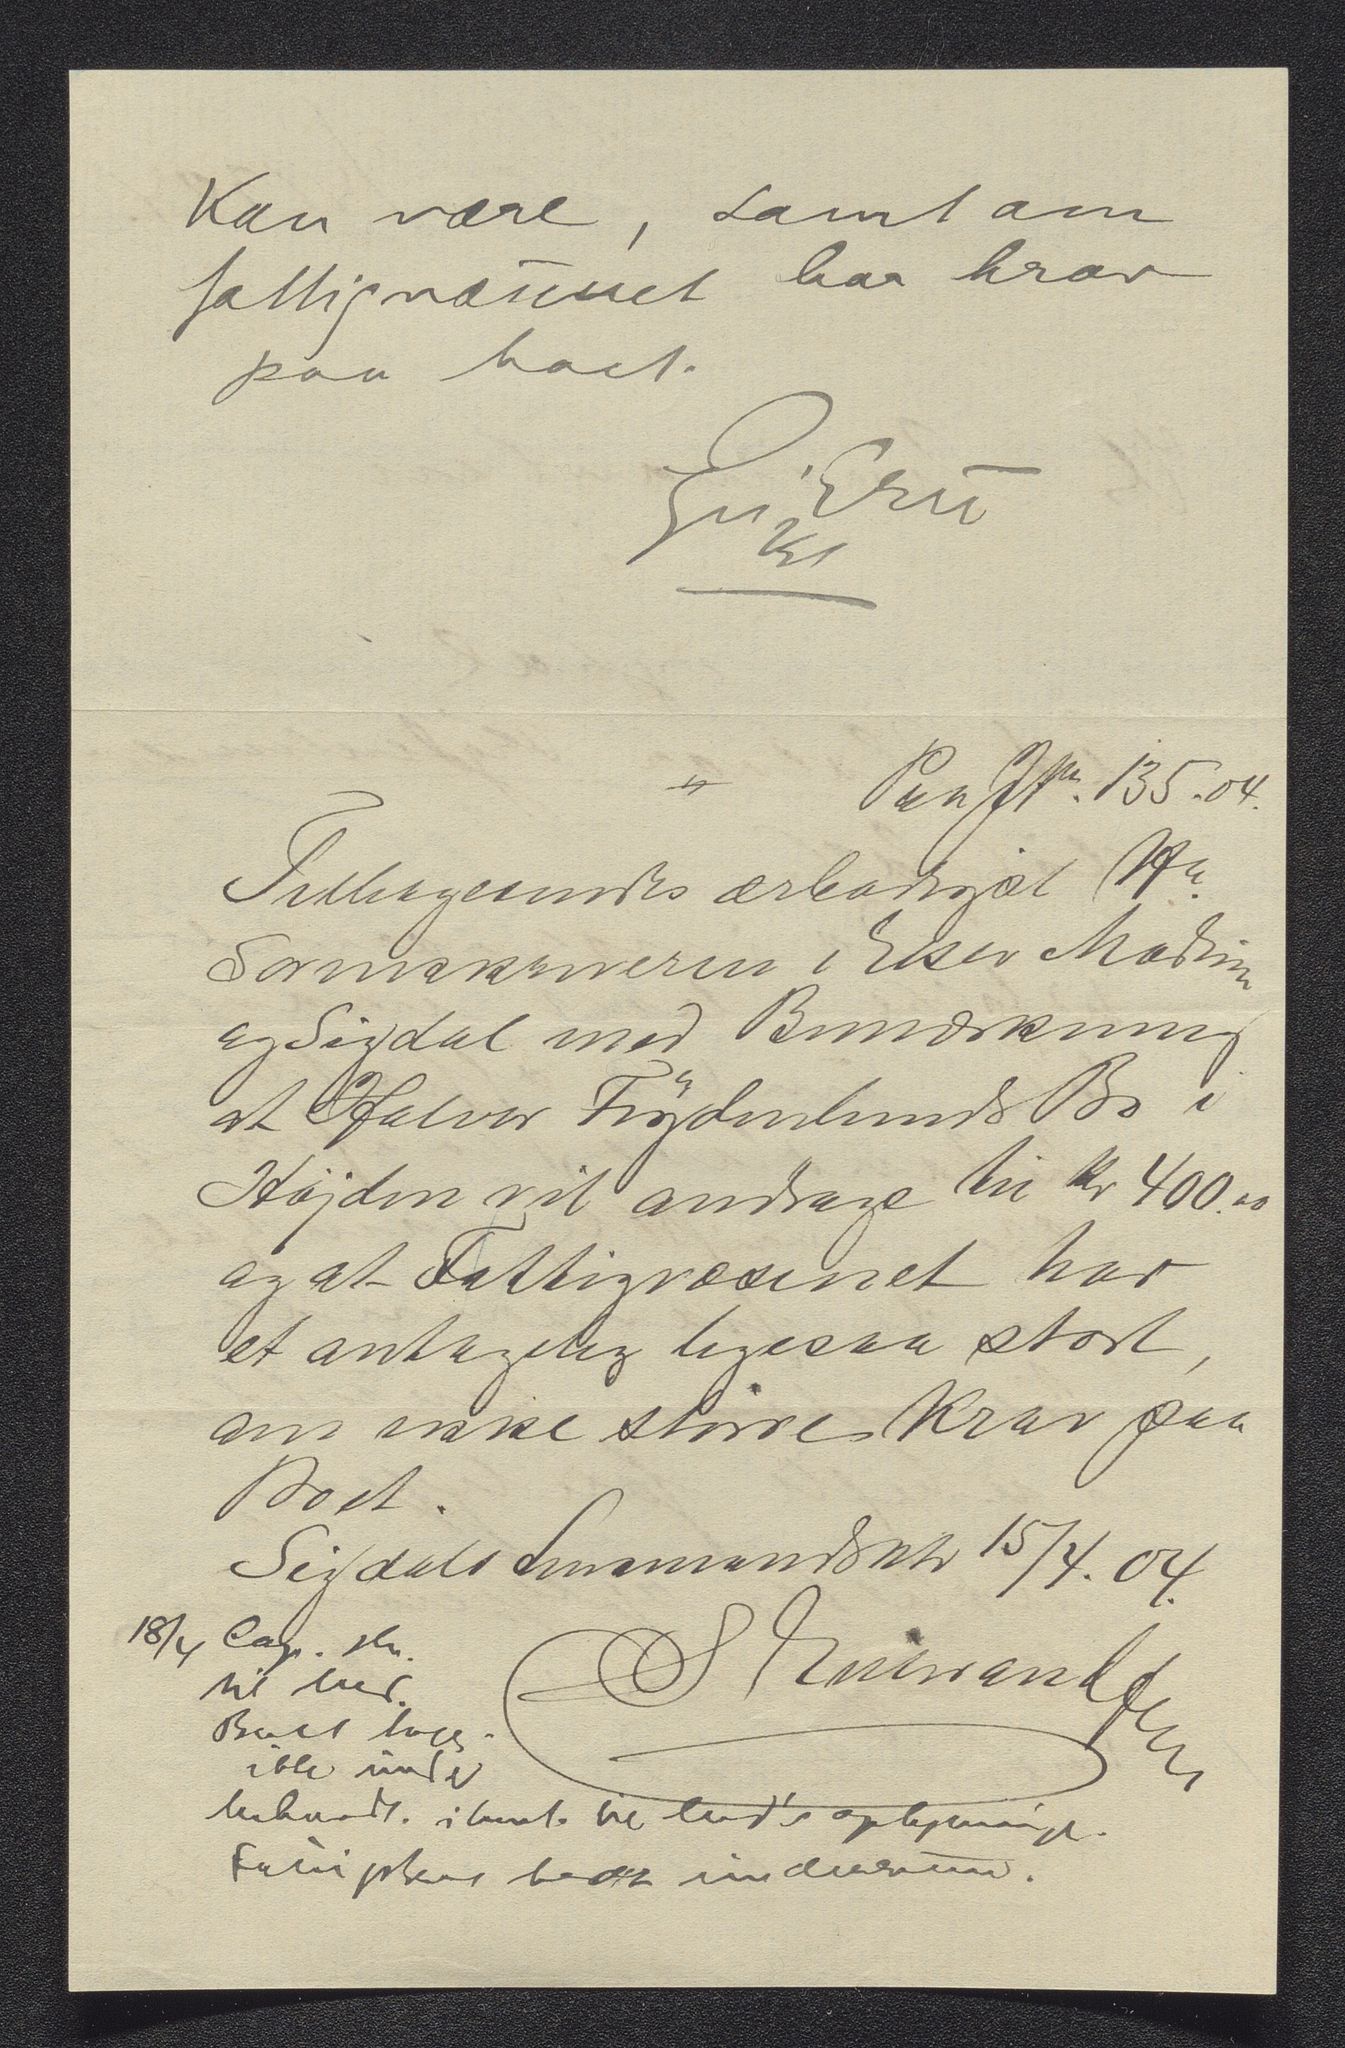 Kan være, samt om
fattigvæsenet har krav
paa boet.
Kst
Paa Jr. 135.04.
Tilbagesendes ærbødigst Hr.
Sorenskriveren i Eker Modum
og Sigdal med Bemærkning
at Halvor Frydenlunds Bo i
Højden vil andrage til Kr 400.00
og at Fattigvæsenet har
et antagelig ligesaa stort,
om ikke større Krav paa
Boet.
Sigdals Lensmandsktr 15/4.04.
18/4 Cap. skr.
til
Boet
ikke under
behandl. til oplysning.
boet